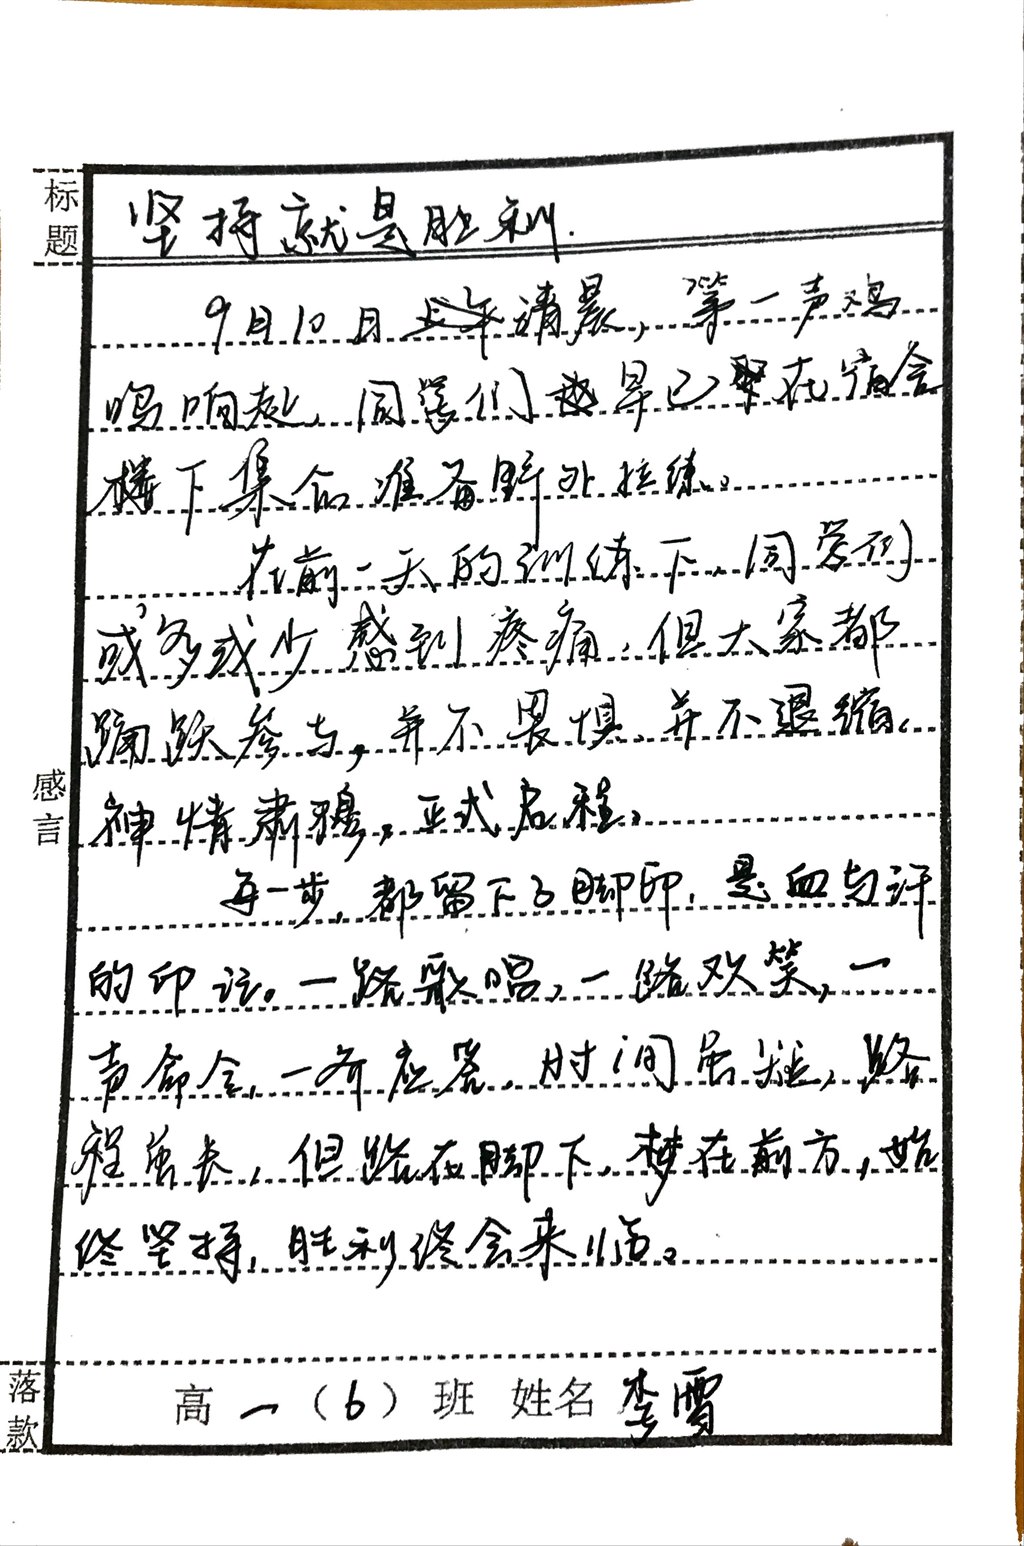 标题
坚持就是胜利.
9月10日清晨，第一声鸡
鸣响起，同学们早已聚在宿舍
楼下集合准备野外拉练。
在前一天的训练下，同学们
或多或少感到疼痛，但大家都
踊跃参与，并不畏惧，并不退缩，
神情肃穆，正式启程。
感言
每一步，都留下了脚印，是血与汗
的印记。一路歌唱，一路欢笑，一
声命令，一齐应答，时间虽短，路
程虽长，但路在脚下，梦在前方，始
终坚持，胜利终会来临。
落款
高一（6）班 姓名 李雪